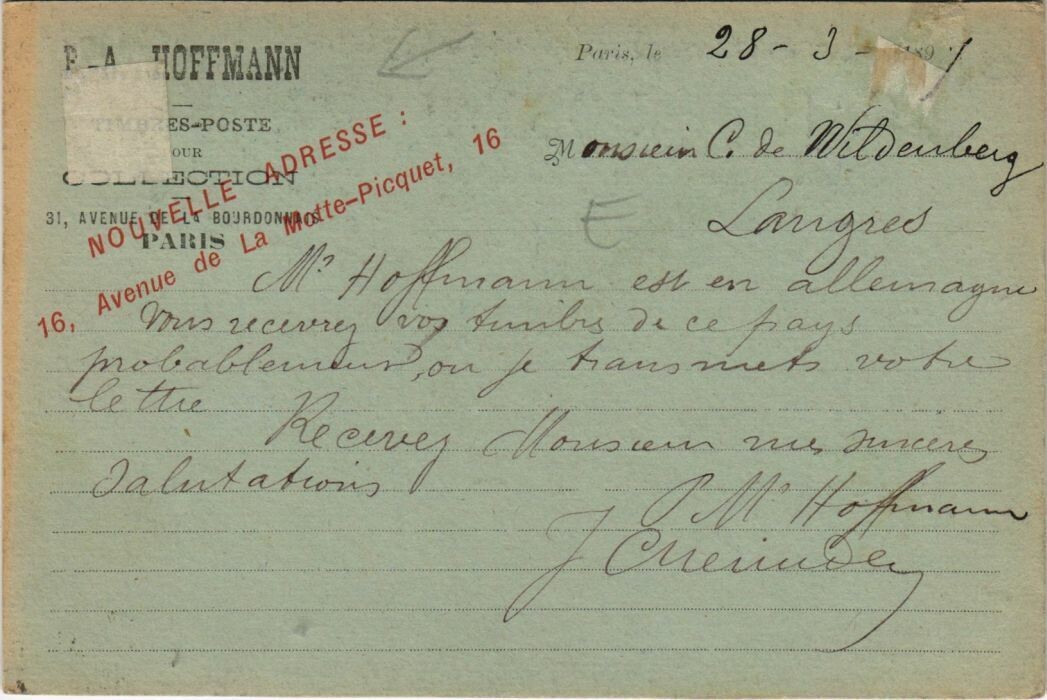 P.-A. HOFFMANN
TIMBRES-POSTE
POUR
COLLECTION
31, AVENUE DE LA BOURDONNAIS
PARIS
NOUVELLE ADRESSE :
16, Avenue de La Motte-Picquet, 16
Paris, le 28 - 3 - 1891
Monsieur C. de Wildenberg
Langres
E
Mr Hoffmann est en allemagne
Vous recevrez vos timbres de ce pays
probablement, ou je transmets votre
lettre
Recevez Monsieur mes sincères
salutations
P Mr Hoffmann
J